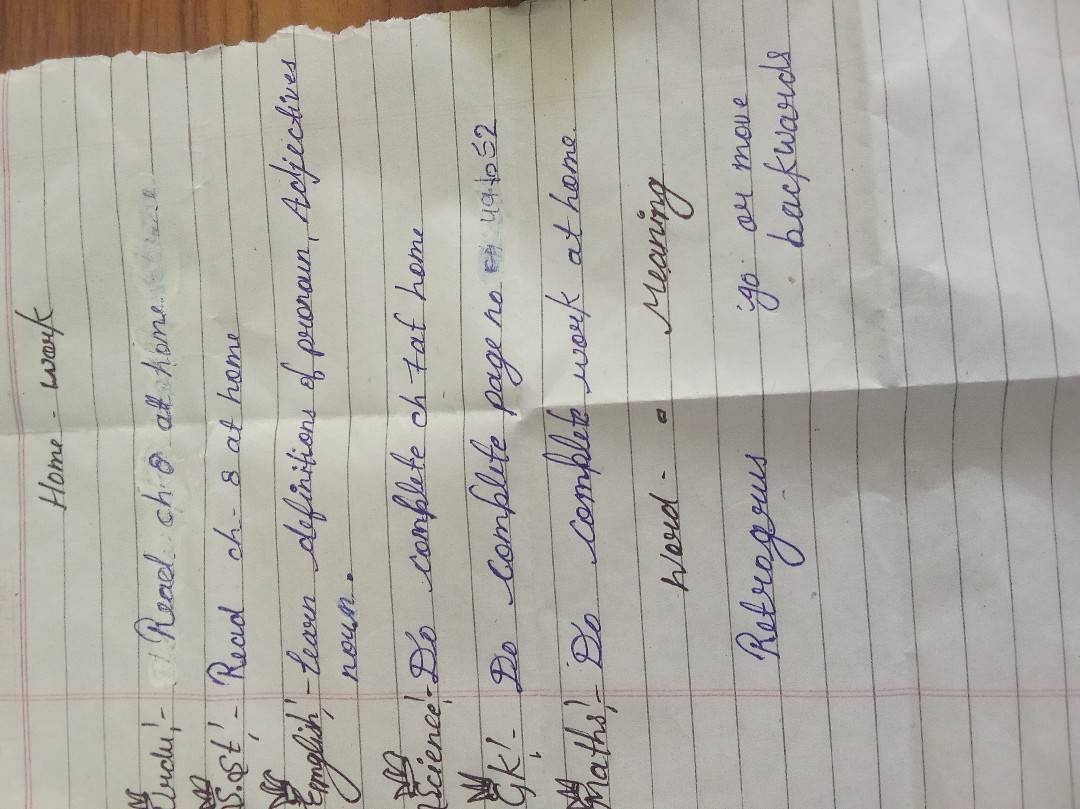 Home - work
Urdu! - Read ch 8 at home.
S.st! - Read ch - 8 at home
English! - learn definitions of pronoun, Adjectives
noun.
Science! - Do complete ch 7 at home
GK! - Do complete page no 49 to 52
Maths! - Do complete work at home.
Word - Meaning
Retrogrus go or move
backwards